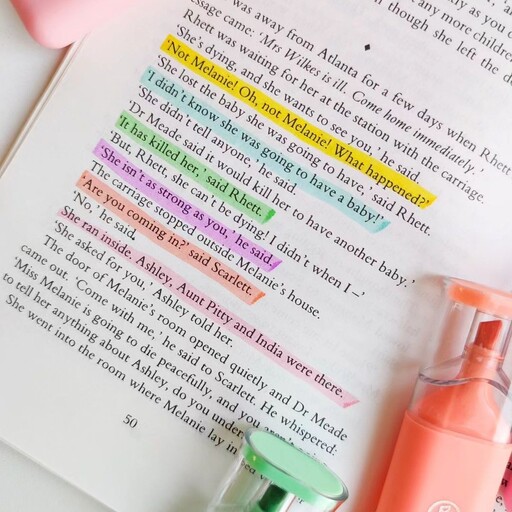 was away from Atlanta for a few days when Rhett
message came: 'Mrs Wilkes is ill. Come home immediately.'
Rhett was waiting for her at the station with the carriage.
'She's dying, and she wants to see you,' he said.
'Not Melanie! Oh, not Melanie! What happened?'
'She lost the baby she was going to have,' said Rhett.
'I didn't know she was going to have a baby!'
'She didn't tell anyone,' he said.
'Dr Meade said it would kill her to have another baby.'
'It has killed her,' said Rhett.
'But, Rhett, she can't be dying! I didn't when I –'
'She isn't as strong as you,' he said.
The carriage stopped outside Melanie's house.
'Are you coming in?' said Scarlett.
'No,' he said.
She ran inside. Ashley, Aunt Pitty and India were there.
'She asked for you,' Ashley told her.
The door of Melanie's room opened quietly and Dr Meade
came out. 'Come with me,' he said to Scarlett. He whispered.
'Miss Melanie is going to die peacefully, and you aren't
to tell her anything about Ashley, do you under
She went into the room where Melanie lay in
50